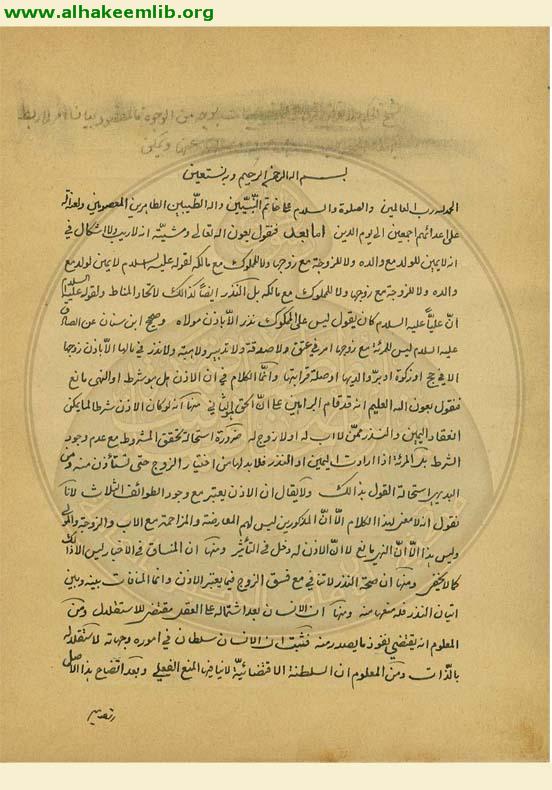 www.alhakeemlib.org
بوجه من الوجوه فالمقصود بيان
بسم الله الرحمن الرحيم وبه نستعين
الحمد لله رب العالمين والصلوة والسلام على خاتم النبيين واله الطيبين الطاهرين المعصومين ولعنة الله
على اعدائهم اجمعين الى يوم الدين اما بعد فنقول بعون الله تعالى ومشيته انه لا ريب ولا اشكال في
انه لا يمين للولد مع والده ولا للزوجة مع زوجها ولا للمملوك مع مالكه لقوله عليه السلام لا يمين لولد مع
والده ولا للزوجة مع زوجها ولا للمملوك مع مالكه بل النذر ايضاً كذالك لاتحاد المناط ولقوله عليه السلام
انّ عليّاً عليه السلام كان يقول ليس على المملوك نذر الّا باذن مولاه وصحيح ابن سنان عن الصادق
عليه السلام ليس للمرئة مع زوجها امر في عتق ولا صدقة ولا تدبير ولا هبة ولا نذر في مالها الّا باذن زوجها
الا في حج او زكوة او برّ والديها او صلة قرابتها وانّما الكلام في ان الاذن هل هو شرط او النهى مانع
فنقول بعون الله العليم انه قد قام البراهين على انّ الحق هو الثاني منها انه لو كان الاذن شرطا لما يمكن
انعقاد اليمين والنذر ممّن لا اب له او لا زوج له ضرورة استحالة تحقق المشروط مع عدم وجود
الشرط بل المرئة اذا ارادت اليمين او النذر فلا بد لها من اختيار الزوج حتى تستأذن منه ومن
البديهي استحالة القول بذالك ولا يقال ان الاذن يعتبر مع وجود الطوائف الثلاث لانا
نقول انه لا معنى لهذا الكلام الّا انّ المذكورين ليس لهم المعارضة والمزاحمة مع الاب والزوج والمولى
وليس هذا الّا انّ النهى مانع لا انّ الاذن له دخل في التأثير ومنها ان المنساق في الاخبار ليس الا ذالك
كما لا يخفى ومنها ان صحة النذر لا تنافي مع فسق الزوج فيما يعتبر الاذن وانما المنافات بينه وبين
اتيان النذر فله منعها منه ومنها ان الانسان بعد اشتماله على العقل مقتض للاستقلال ومن
المعلوم انه يقتضي نفوذ ما يصدر منه فثبت ان الانسان سلطان في اموره وجهاته لاستقلاله
بالذات ومن المعلوم ان السلطنة الاقتضائيّة لا ينافيها المنع الفعلي وبعد اتضاح هذا الاصل